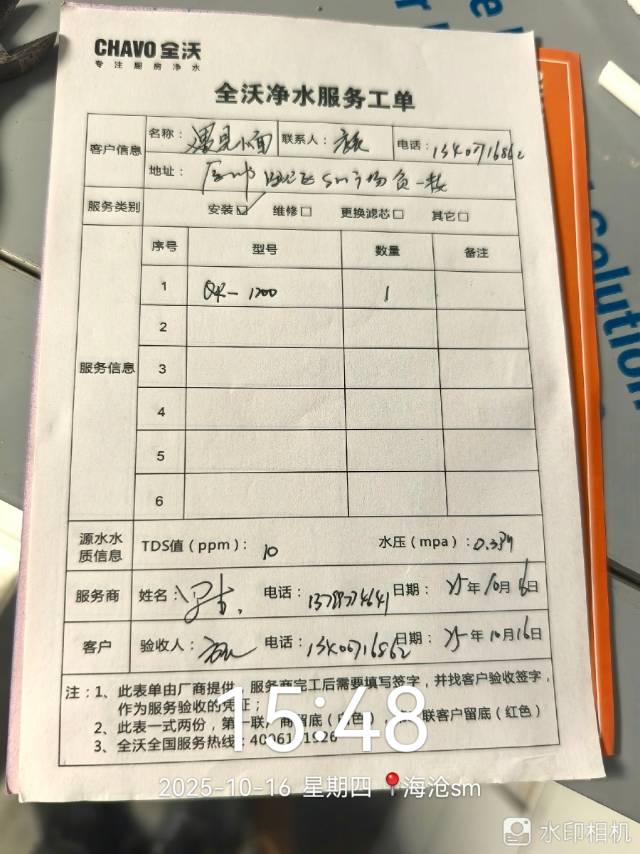 CHAVO 全沃
专注厨房净水
全沃净水服务工单
客户信息 名称：遇见小面 联系人： 电话：13400716862
地址：厦门市 SM 广场负一楼
服务类别 安装☑ 维修□ 更换滤芯□ 其它□
服务信息 序号 型号 数量 备注
1 QR-1200 1
2
3
4
5
6
源水水质信息 TDS值（ppm）：10 水压（mpa）：
服务商 姓名： 电话： 日期：25年10月16日
客户 验收人： 电话：13400716862 日期：25年10月16日
注：1、此表单由厂商提供，服务商完工后需要填写签字，并找客户验收签字，
作为服务验收的凭证；
2、此表一式两份，第一联 商留底（ 色）， 联客户留底（红色）
3、全沃全国服务热线
15:48
2025-10-16 星期四 📍海沧sm
水印相机
olution